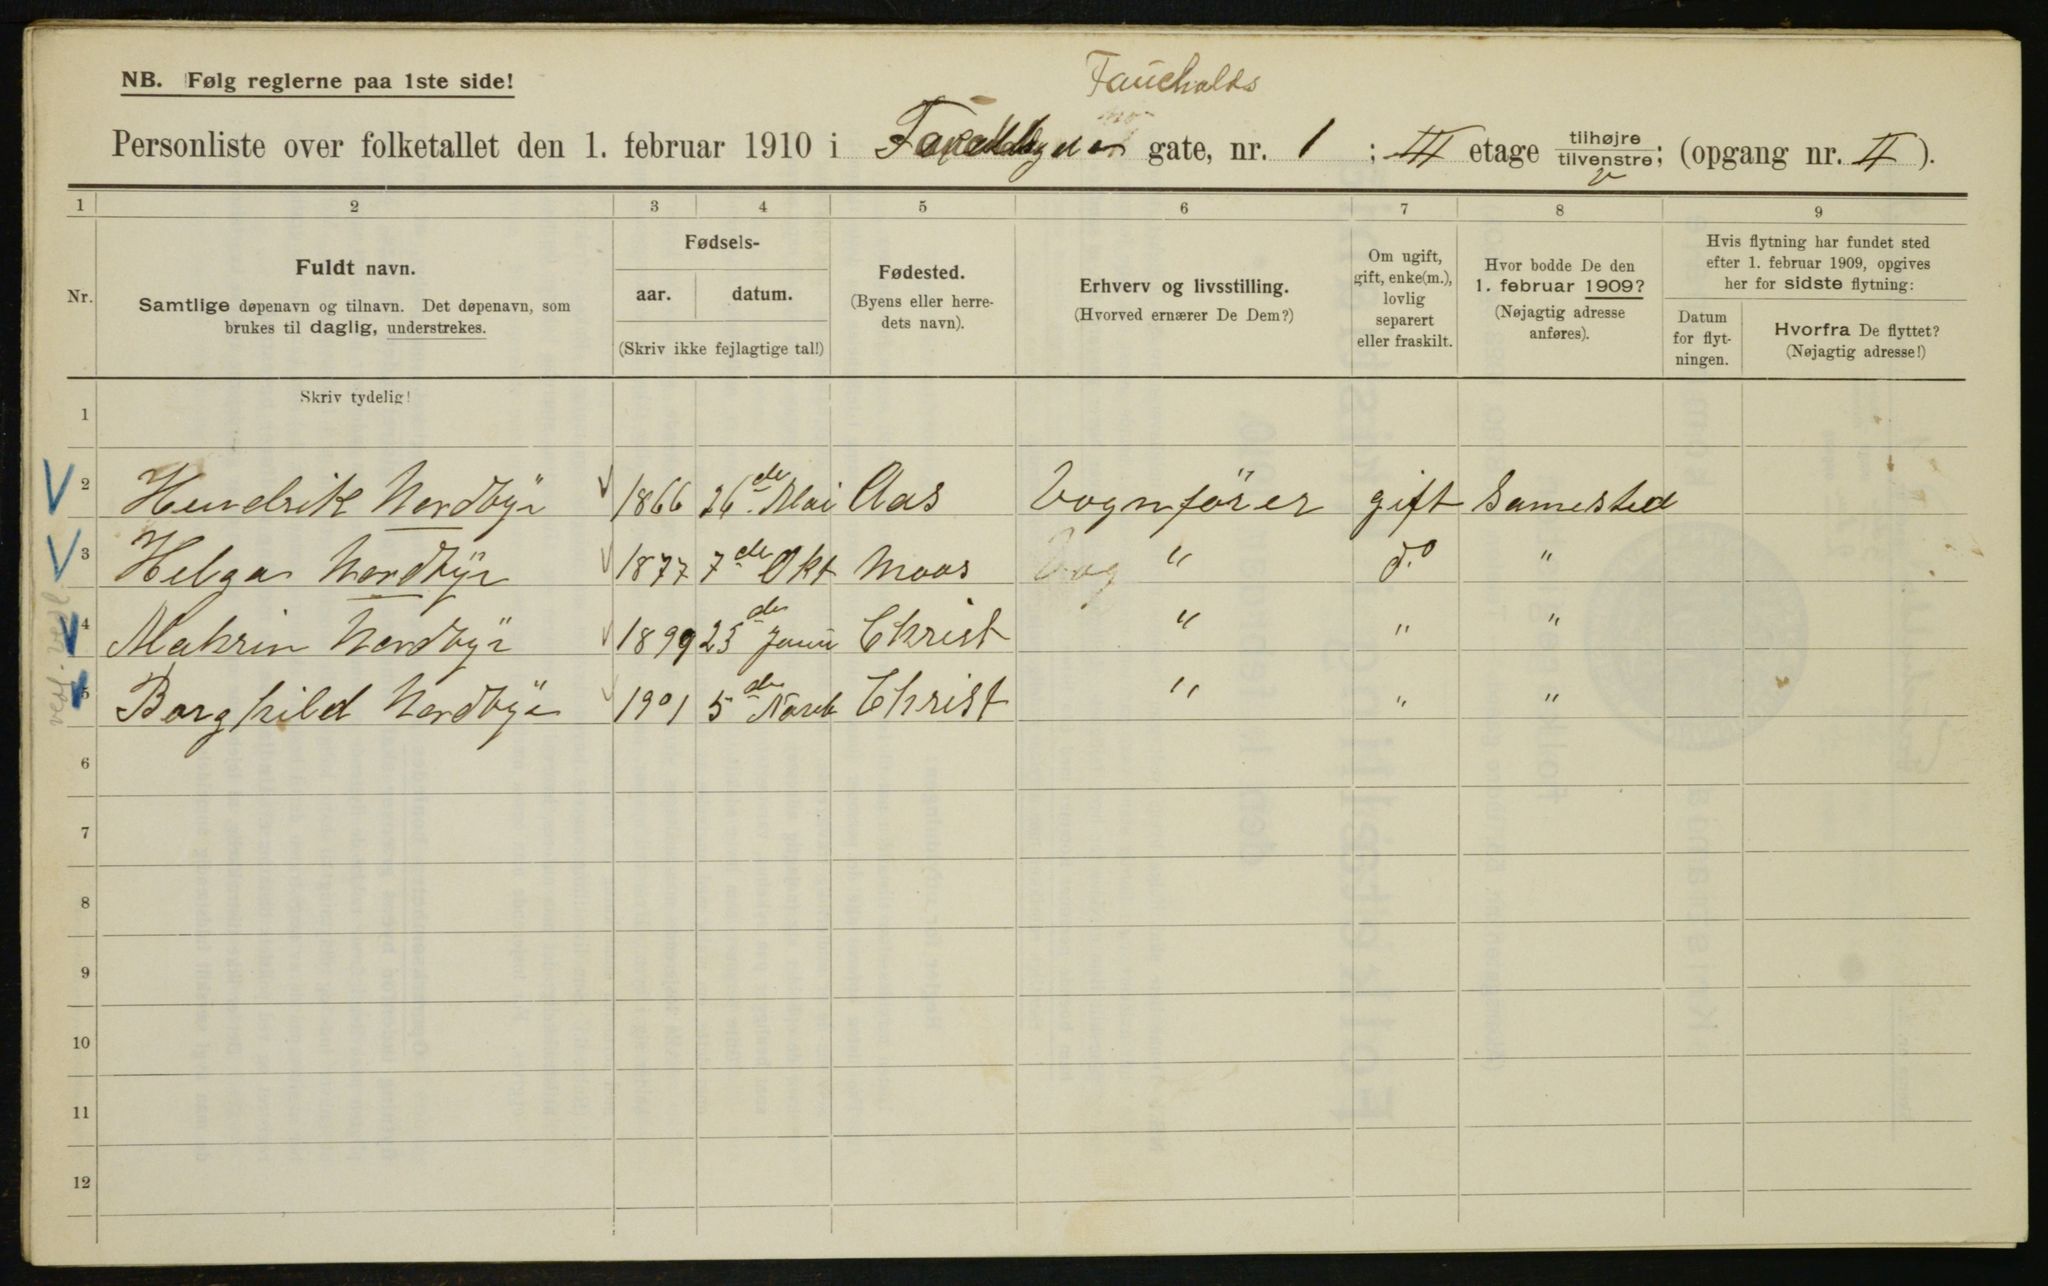 Fauchalds
NB. Følg reglerne paa 1ste side!
Personliste over folketallet den 1. februar 1910 i gate, nr. 1 ; III etage tilhøjre tilvenstre; (opgang nr. II ).
1 2 3 4 5 6 7 8 9
Nr.
Fuldt navn.
Samtlige døpenavn og tilnavn. Det døpenavn, som
brukes til daglig, understrekes.
Fødsels-
aar. datum.
(Skriv ikke fejlagtige tal!)
Fødested.
(Byens eller herre-
dets navn).
Erhverv og livsstilling.
(Hvorved ernærer De Dem?)
Om ugift,
gift, enke(m.),
lovlig
separert
eller fraskilt.
Hvor bodde De den
1. februar 1909?
(Nøjagtig adresse
anføres).
Hvis flytning har fundet sted
efter 1. februar 1909, opgives
her for sidste flytning:
Datum
for flyt-
ningen.
Hvorfra De flyttet?
(Nøjagtig adresse!)
Skriv tydelig!
1
2 Hendrik Nordbÿe 1866 26de Mai Aas Vognförer gift Samested
3 Helga Nordbÿe 1877 7de Okt Moos " do "
4 Mahrin Nordbÿe 1899 25de Janu Christ " " "
5 Borghild Nordbÿe 1901 5de Novb Christ " " "
6
7
8
9
10
11
12